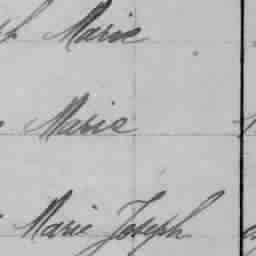 Marie
Marie
Marie Joseph